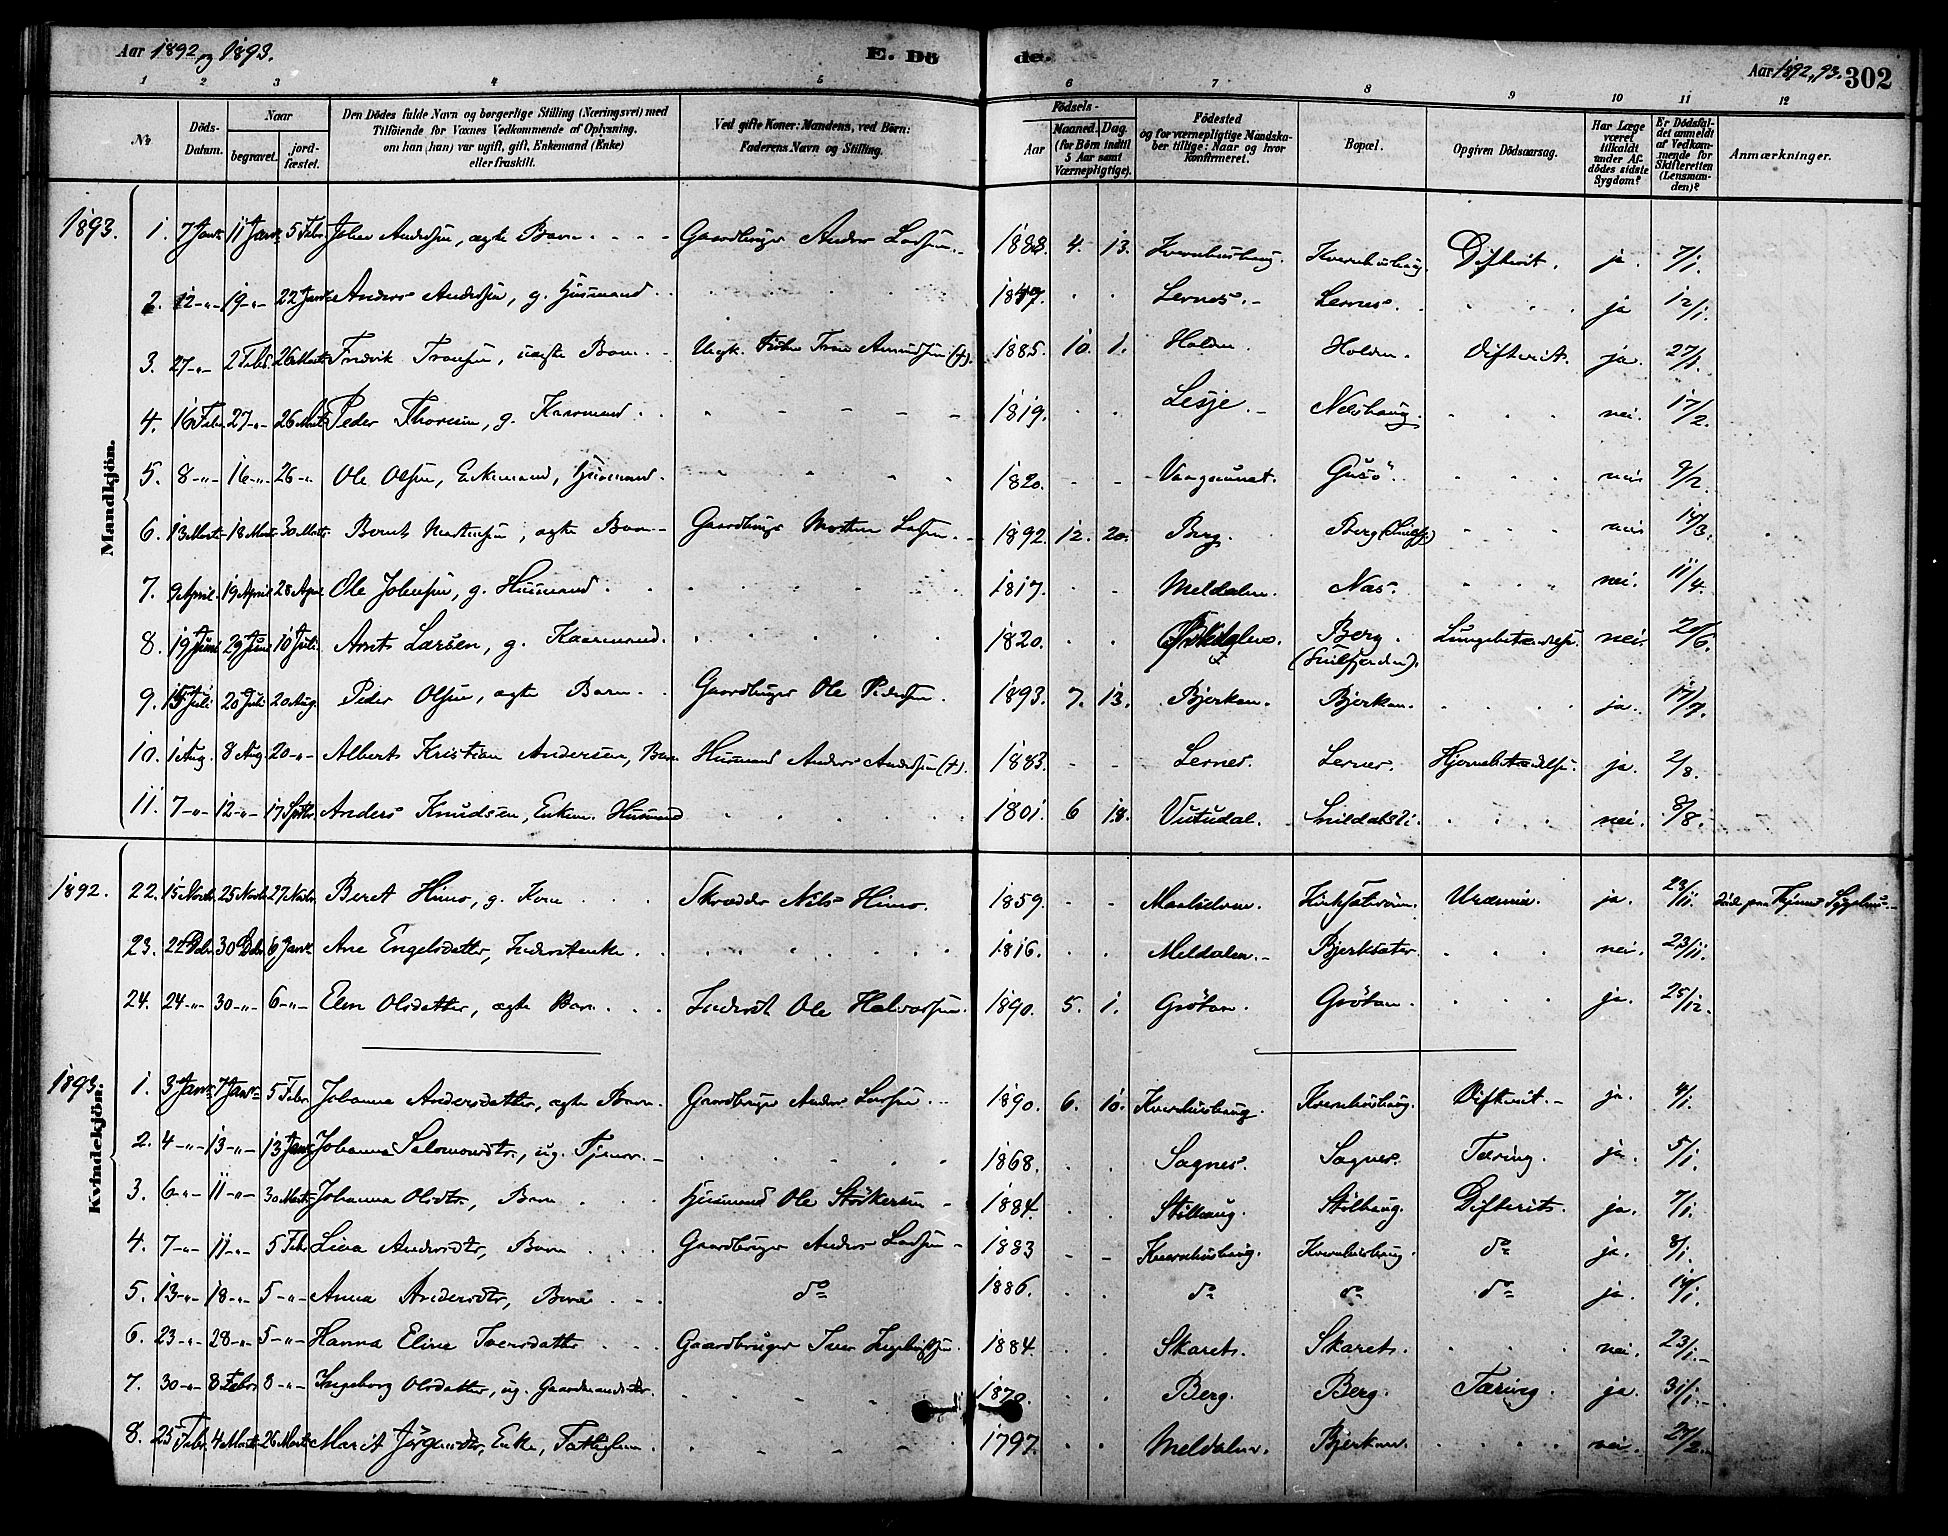 Aar 1892 og 1893. E. Dö de. Aar 1892, 93. 302
1 2 3 4 5 6 7 8 9 10 11 12
No Döds-Datum. Naar begravet. jordfæstet. Den Dödes fulde Navn og borgerlige Stilling (Næringsvei) med Tilföiende for Voxnes Vedkommende af Oplysning, om han (hun) var ugift, gift, Enkemand (Enke) eller fraskilt. Ved gifte Koner: Mandens, ved Börn: Faderens Navn og Stilling. Födsels- Aar Maaned. Dag. (for Börn indtil 5 Aar samt Værnepligtige). Födested og for værnepligtige Mandskaber tillige: Naar og hvor konfirmeret. Bopæl. Opgiven Dödsaarsag. Har Læge været tilkaldt under Afdödes sidste Sygdom? Er Dödsfaldet anmeldt af Vedkommende for Skifteretten (Lensmanden)? Anmærkninger.
Mandkjön.
1893. 1. 7 Janr 11 Janr 5 Febr. Johan Andersen, ægte Barn Gaardbruger Anders Larsen 1888 4. 13. Kvernhushaug. Kvernhushaug. Difterit. ja. 7/1.
2. 12 -"- 19 -"- 22 Janr Anders Andersen, g. Husmand 1847. Lernes. Lernes. ja 12/1.
3. 27 -"- 2 Febr. 26 Marts Fredrik Tronsen, uægte Barn Ungk. Tron Amundsen (+). 1885. 10. 1. Holden. Holden. Difterit. ja. 27/1.
4. 16 Febr. 27 -"- 26 Marts Peder Thoresen, g. Kaarmand 1819. Lesje. Nelshaug. nei. 17/2.
5. 8 -"- 16 -"- 26 -"- Ole Olsen, Enkemand, Husmand. 1820. Vaagsunnet. Gusö. nei 9/2.
6. 13 Marts 18 Marts 30 Marts Bernt Mortensen, ægte Barn Gaardbruger Morten Larsen 1892. 12. 20. Berg. Berg (Snilfj.) nei 14/3.
7. 9 April. 19 April 28 April Ole Johnsen, g. Husmand. 1817. Meldalen. Nas. nei. 11/4.
8. 19 Juni 29 Juni 10 Juli. Arnt Larsen, g. Kaarmand. 1820. Berg. (Snilfjorden). Lungebetændelse. nei. 20/6.
9. 15 Juli 20 Juli 20 Aug. Peder Olsen, ægte Barn. Gaardbruger Ole Pedersen. 1893. 7. 13. Bjerkan. Bjerkan. ja. 17/7.
10. 1 Aug. 8 Aug. 20 -"- Albert Kristian Andersen, Barn Husmand Anders Andersen (+). 1883. Lernes. Lernes. Hjernebetændelse. ja. 2/8.
11. 7 -"- 12 -"- 17 Septbr. Anders Knudsen, Enkem. Husmand 1801. 6 18. Vuttudal. Snildalsli. nei. 8/8.
1892. 22. 15 Novbr. 25 Novbr 27 Novbr. Beret Himo, g. Kone Skræder Nils Himo. 1859. Kirksæterören. Uræmi. ja. 23/11. död paa Sygehus.
23. 22 Debr. 30 Debr. 6 Janr. Ane Engelsdatter, Inderstenke 1816. Meldalen. Bjerksæter. nei. 23/11.
24. 24 -"- 30 -"- 6 -"- Elen Olsdatter, ægte Barn Inderst Ole Halvorsen. 1890. 5. 1. Grötan. Grötan. ja. 25/12.
Kvindekjön.
1893. 1. 3 Janr. 7 Janr. 5 Febr. Johanna Andersdatter, ægte Barn. Gaardbruger Anders Larsen 1890. 6. 10. Kvernhushaug. Kvernhushaug. Difterit. ja. 4/1.
2. 4 -"- 13 -"- 13 Janr. Johanna Salomonsdtr., ug. Tjener. 1868. Sagnes. Sagnes. Tæring. ja. 5/1.
3. 6 -"- 11 -"- 30 Marts Johanna Olsdtr., Barn Husmand Ole Störkersen 1884. Stölhaug. Stölhaug. Difterit. ja. 7/1.
4. 7 -"- 11 -"- 5 Febr. Lina Andersdtr, Barn Gaardbruger Anders Larsen 1883 Kvernhushaug. Kvernhushaug. do ja. 8/1.
5. 13 -"- 18 -"- 5 -"- Anna Andersdtr, Barn do 1886. do do do ja. 14/1.
6. 23 -"- 28 -"- 5 -"- Hanna Eline Iversdatter Gaardbruger Iver Ingebrigtsen. 1884. Skaret. Skaret. nei. 23/1.
7. 30 -"- 8 Febr. 8 -"- Ingeborg Olsdatter, ug. Gaardmandsdtr. 1870. Berg. Berg. Tæring. ja 31/1.
8. 25 Febr. 4 Marts 26 Marts Marit Jörgensdtr, Enke, Fattiglem. 1797. Meldalen. Bjerkan. nei. 27/2.